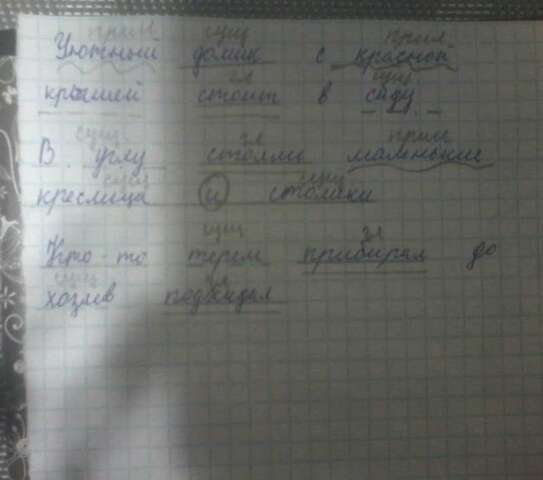 прил сущ прил
Уютный домик с красной
гл сущ
крышей стоит в саду.
сущ гл прил
В углу стояли маленькие
сущ сущ
креслица и столики
сущ гл
Кто-то терем прибирал до
сущ гл
хозяев поджидал